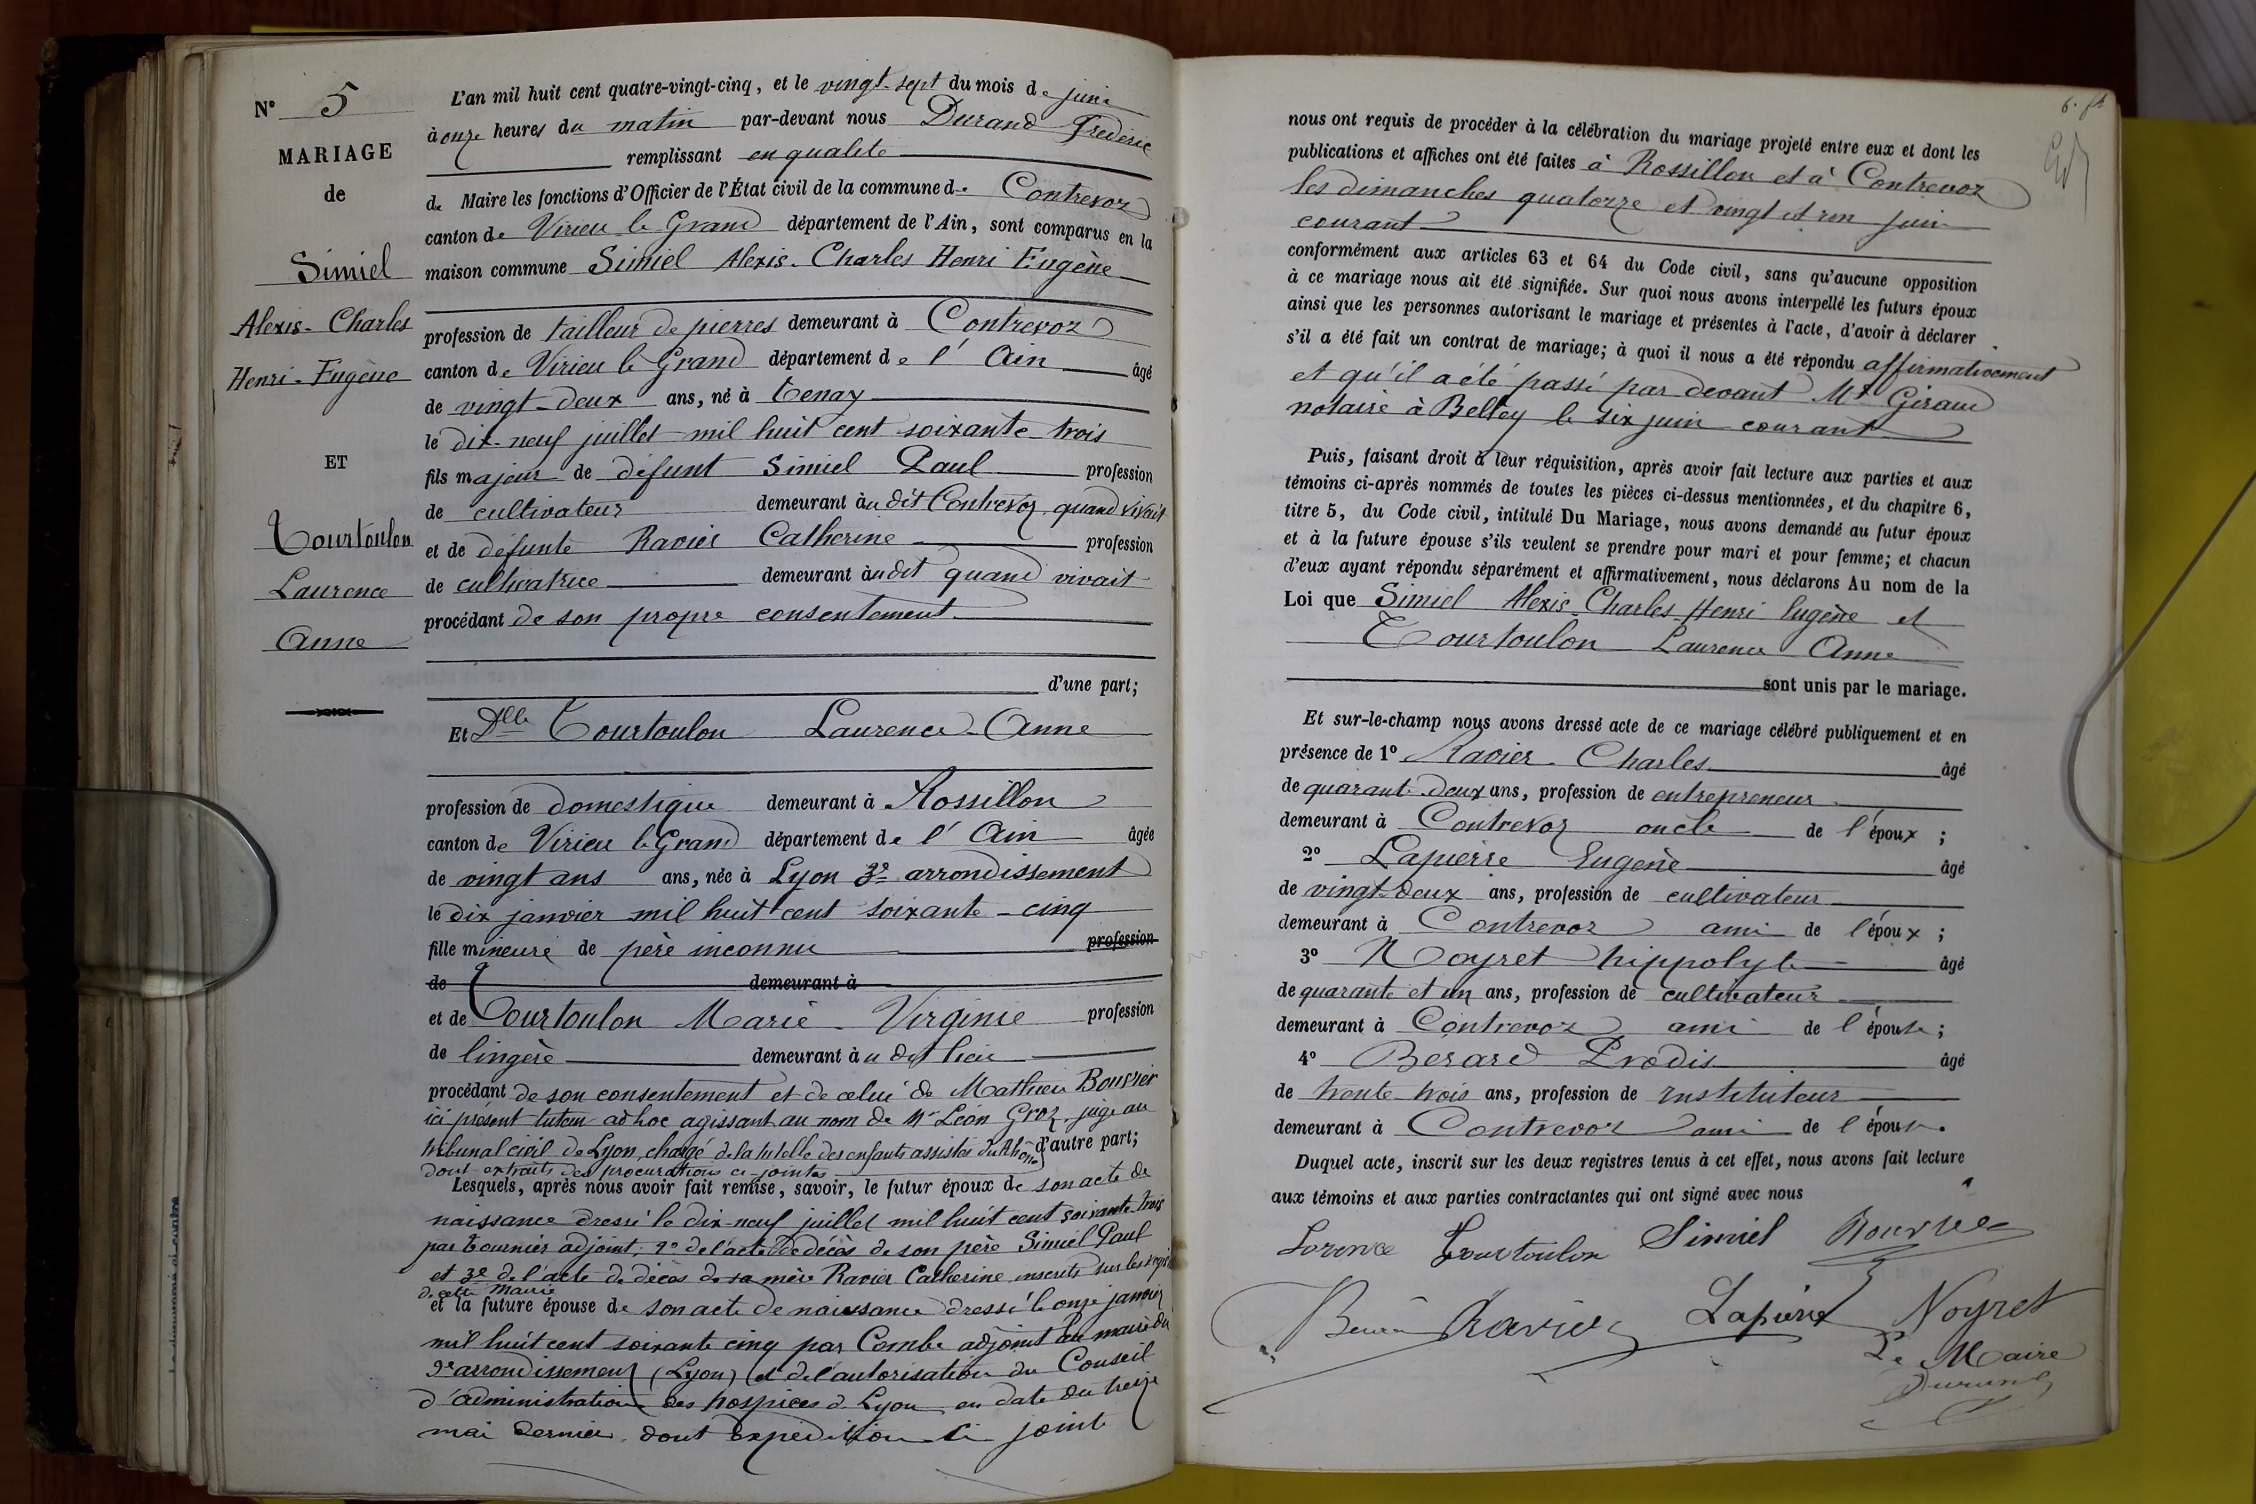 N° 5
MARIAGE
de
Simiel
Alexis-Charles
Henri-Eugène
ET
Tourtoulon
Laurence
Anne
L'an mil huit cent quatre-vingt-cinq, et le vingt-sept du mois de juin
à onze heures du matin par-devant nous Durand Frédéric
remplissant en qualité
de Maire les fonctions d'Officier de l'État civil de la commune de Contrevoz
canton de Virieu le Grand département de l'Ain, sont comparus en la
maison commune Simiel Alexis-Charles Henri Eugène
profession de tailleur de pierres demeurant à Contrevoz
canton de Virieu le Grand département de l'Ain âgé
de vingt-deux ans, né à Tenay
le dix-neuf juillet mil huit cent soixante-trois
fils majeur de défunt Simiel Paul profession
de cultivateur demeurant au dit Contrevoz, quand vivait
et de défunte Ravier Catherine profession
de cultivatrice demeurant au dit quand vivait
procédant de son propre consentement
d'une part;
Et Dlle Tourtoulon Laurence-Anne
profession de domestique demeurant à Rossillon
canton de Virieu le Grand département de l'Ain âgée
de vingt ans ans, née à Lyon 3e arrondissement
le dix janvier mil huit cent soixante-cinq
fille mineure de père inconnu profession
de demeurant à
et de Tourtoulon Marie-Virginie profession
de lingère demeurant au dit lieu
procédant de son consentement et de celui de Mathieu Bouvier
ici présent tuteur ad hoc agissant au nom de Mr Léon Groz, juge au
tribunal civil de Lyon, chargé de la tutelle des enfants assistés du Rhône d'autre part;
dont extraits des procurations ci-jointes
Lesquels, après nous avoir fait remise, savoir, le futur époux de son acte de
naissance dressé le dix-neuf juillet mil huit cent soixante-trois
par Tournier adjoint, 2° de l'acte de décès de son père Simiel Paul
et 3e de l'acte de décès de sa mère Ravier Catherine inscrits sur les regis
de cette Mairie
et la future épouse de son acte de naissance dressé le onze janvier
mil huit cent soixante cinq par Combe adjoint au maire du
3e arrondissement (Lyon) et de l'autorisation du Conseil
d'administration des hospices de Lyon en date du treize
mai dernier dont expédition ci jointe
nous ont requis de procéder à la célébration du mariage projeté entre eux et dont les
publications et affiches ont été faites à Rossillon et à Contrevoz
les dimanches quatorze et vingt et un juin
courant
conformément aux articles 63 et 64 du Code civil, sans qu'aucune opposition
à ce mariage nous ait été signifiée. Sur quoi nous avons interpellé les futurs époux
ainsi que les personnes autorisant le mariage et présentes à l'acte, d'avoir à déclarer
s'il a été fait un contrat de mariage; à quoi il nous a été répondu affirmativement
et qu'il a été passé par devant Mt Giraud
notaire à Belley le six juin courant
Puis, faisant droit à leur réquisition, après avoir fait lecture aux parties et aux
témoins ci-après nommés de toutes les pièces ci-dessus mentionnées, et du chapitre 6,
titre 5, du Code civil, intitulé Du Mariage, nous avons demandé au futur époux
et à la future épouse s'ils veulent se prendre pour mari et pour femme; et chacun
d'eux ayant répondu séparément et affirmativement, nous déclarons Au nom de la
Loi que Simiel Alexis-Charles Henri Eugène et
Tourtoulon Laurence Anne
sont unis par le mariage.
Et sur-le-champ nous avons dressé acte de ce mariage célébré publiquement et en
présence de 1° Ravier Charles âgé
de quarante-deux ans, profession de entrepreneur
demeurant à Contrevoz oncle de l'époux ;
2° Lapierre Eugène âgé
de vingt-deux ans, profession de cultivateur
demeurant à Contrevoz ami de l'époux ;
3° Noyret hippolyte âgé
de quarante et un ans, profession de cultivateur
demeurant à Contrevoz ami de l'épouse ;
4° Berard Prodis âgé
de trente trois ans, profession de instituteur
demeurant à Contrevoz ami de l'épouse.
Duquel acte, inscrit sur les deux registres tenus à cet effet, nous avons fait lecture
aux témoins et aux parties contractantes qui ont signé avec nous
Lorence Tourtoulon Simiel Bouvier
Ravier Lapierre Noyret
Le Maire
Durand